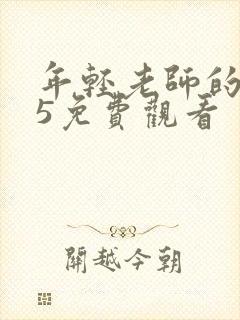 年輕老師的
5免費觀看
關越今朝